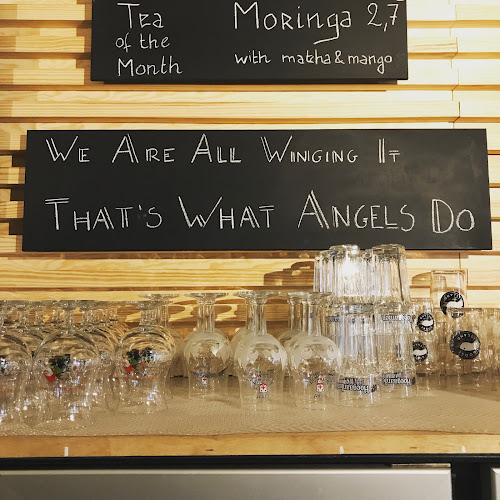 Tea
of the
Month
Moringa 2,7
with matcha & mango
We Are All Winging It
That's What Angels Do
Hoegaarden
Hoegaarden